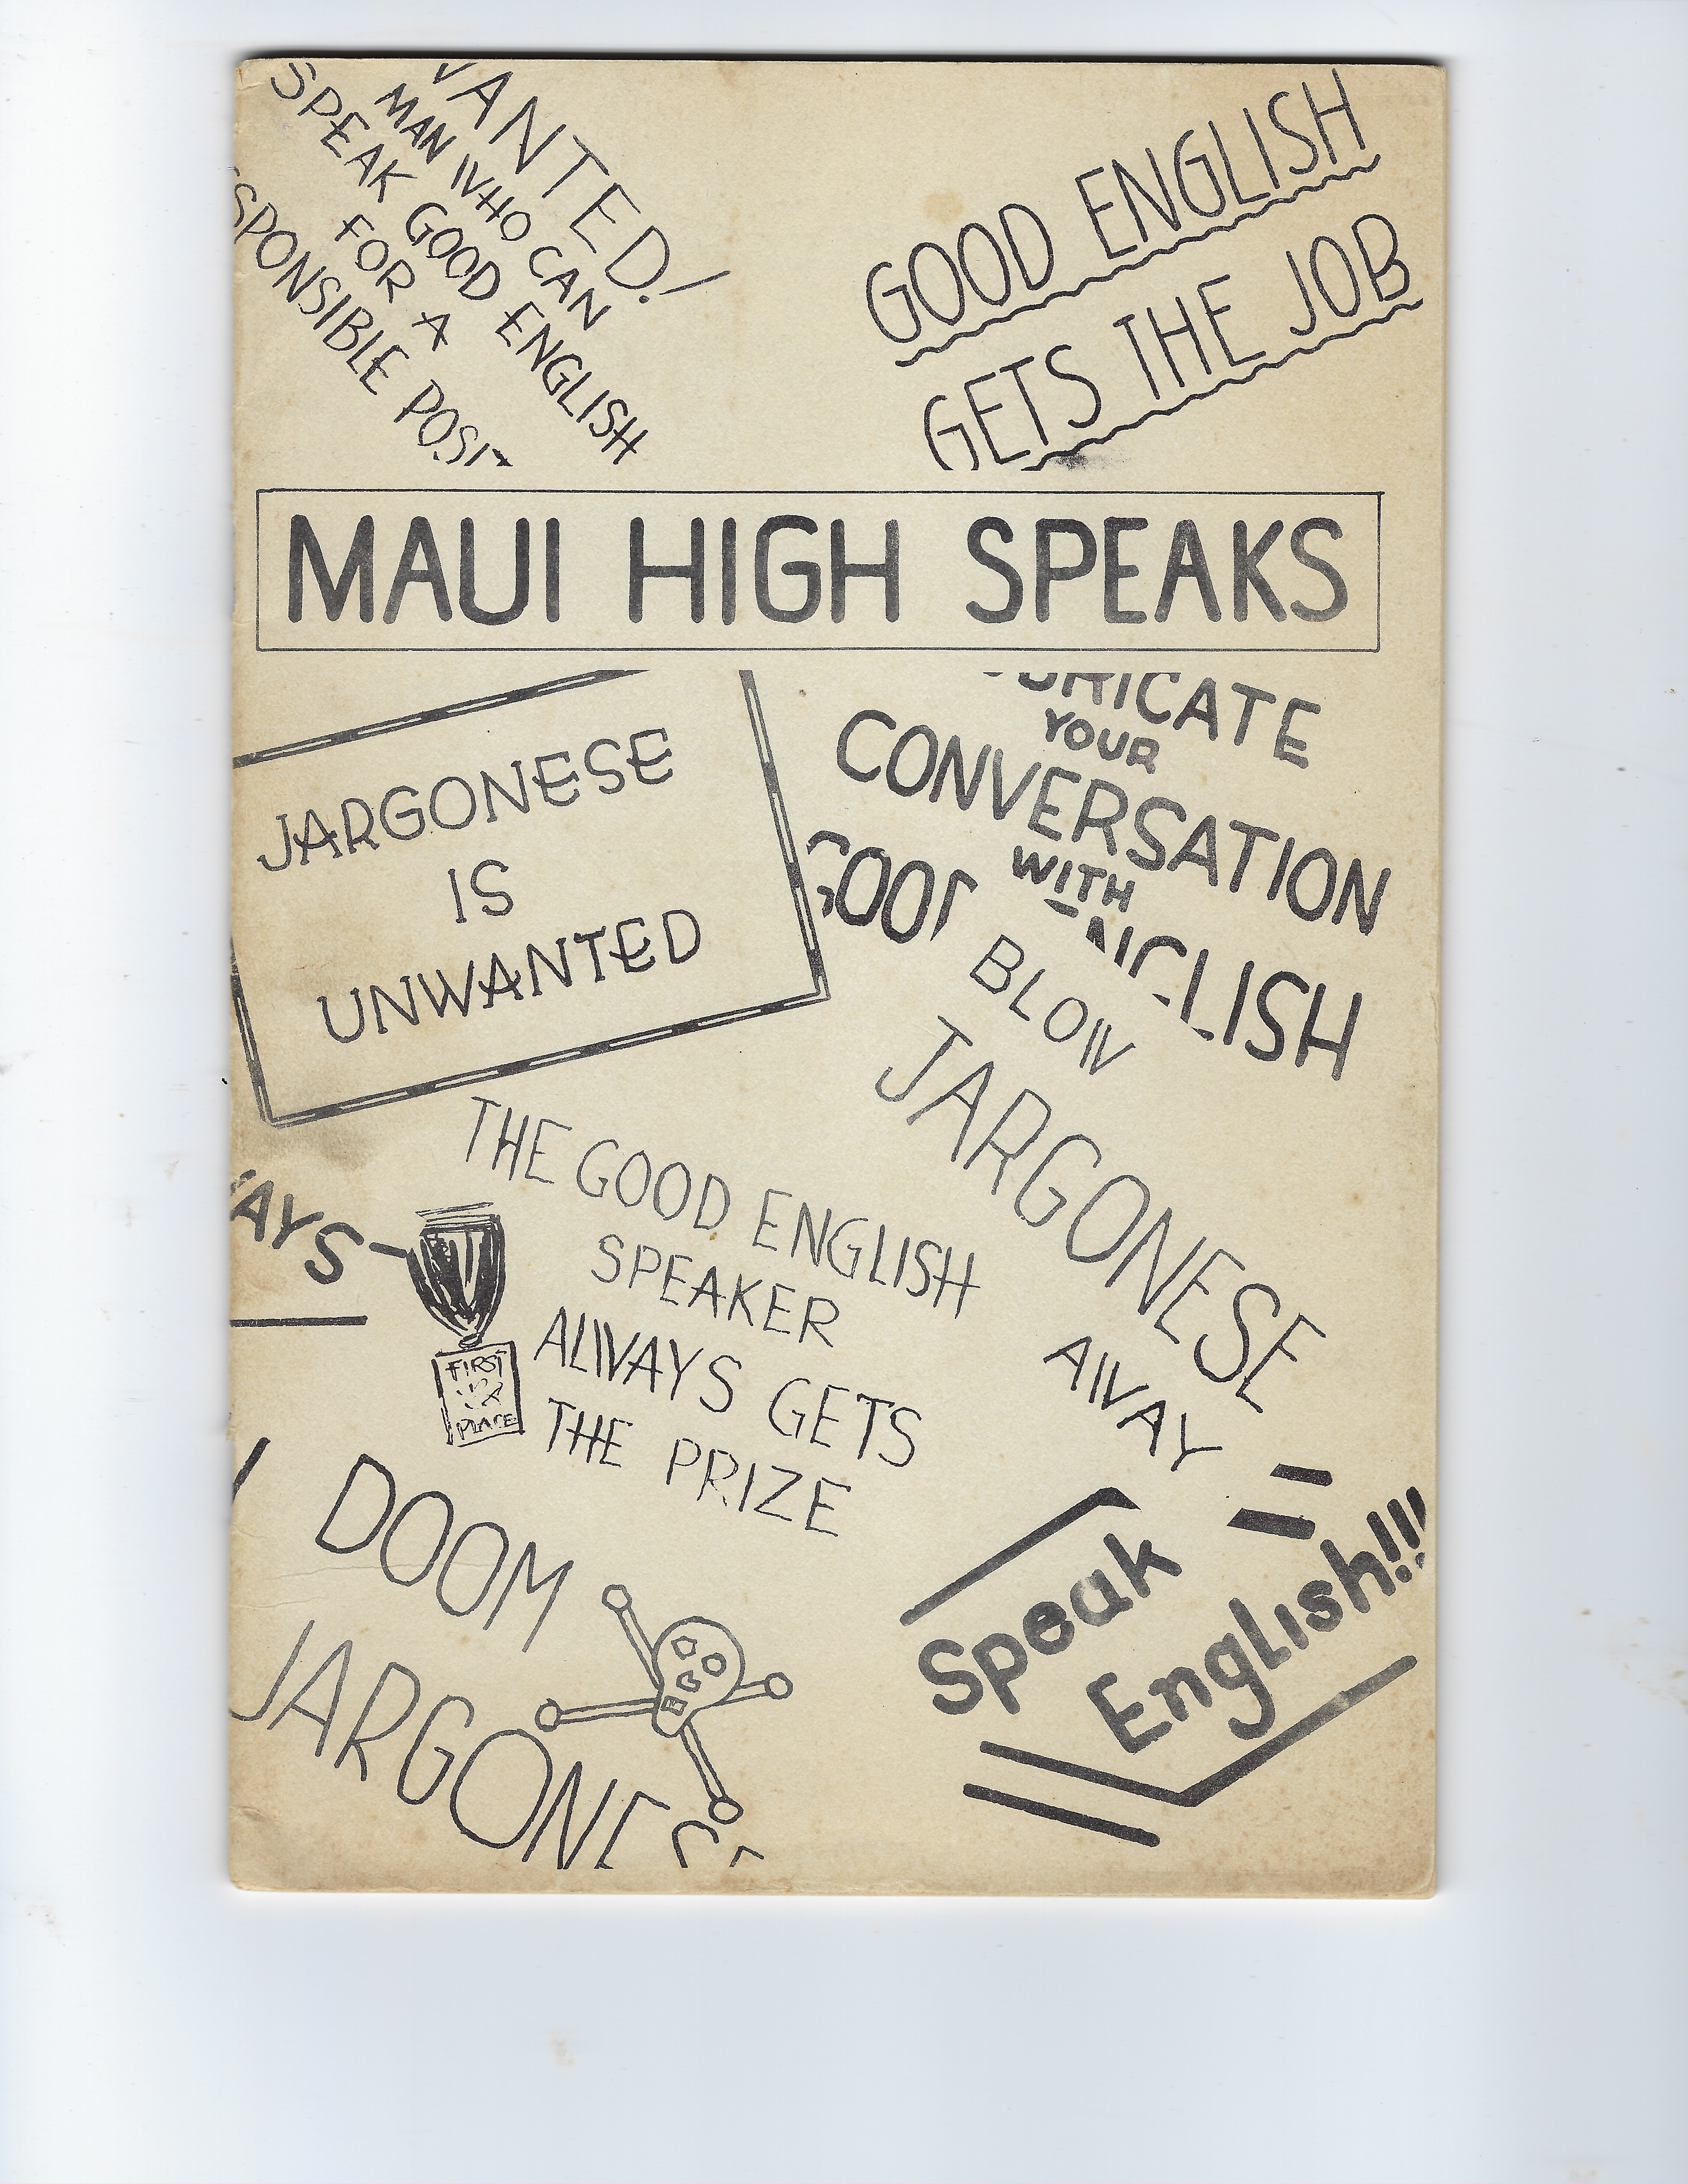 WANTED!
MAN WHO CAN
SPEAK GOOD ENGLISH
FOR A
SPONSIBLE POSI
GOOD ENGLISH
GETS THE JOB
MAUI HIGH SPEAKS
JARGONESE
IS
UNWANTED
BRICATE
YOUR
CONVERSATION
WITH
GOOD ENGLISH
BLOW
JARGONESE
AWAY
THE GOOD ENGLISH
SPEAKER
ALWAYS GETS
THE PRIZE
AYS
FIRST
PLACE
DOOM
JARGONES
Speak
English!!!